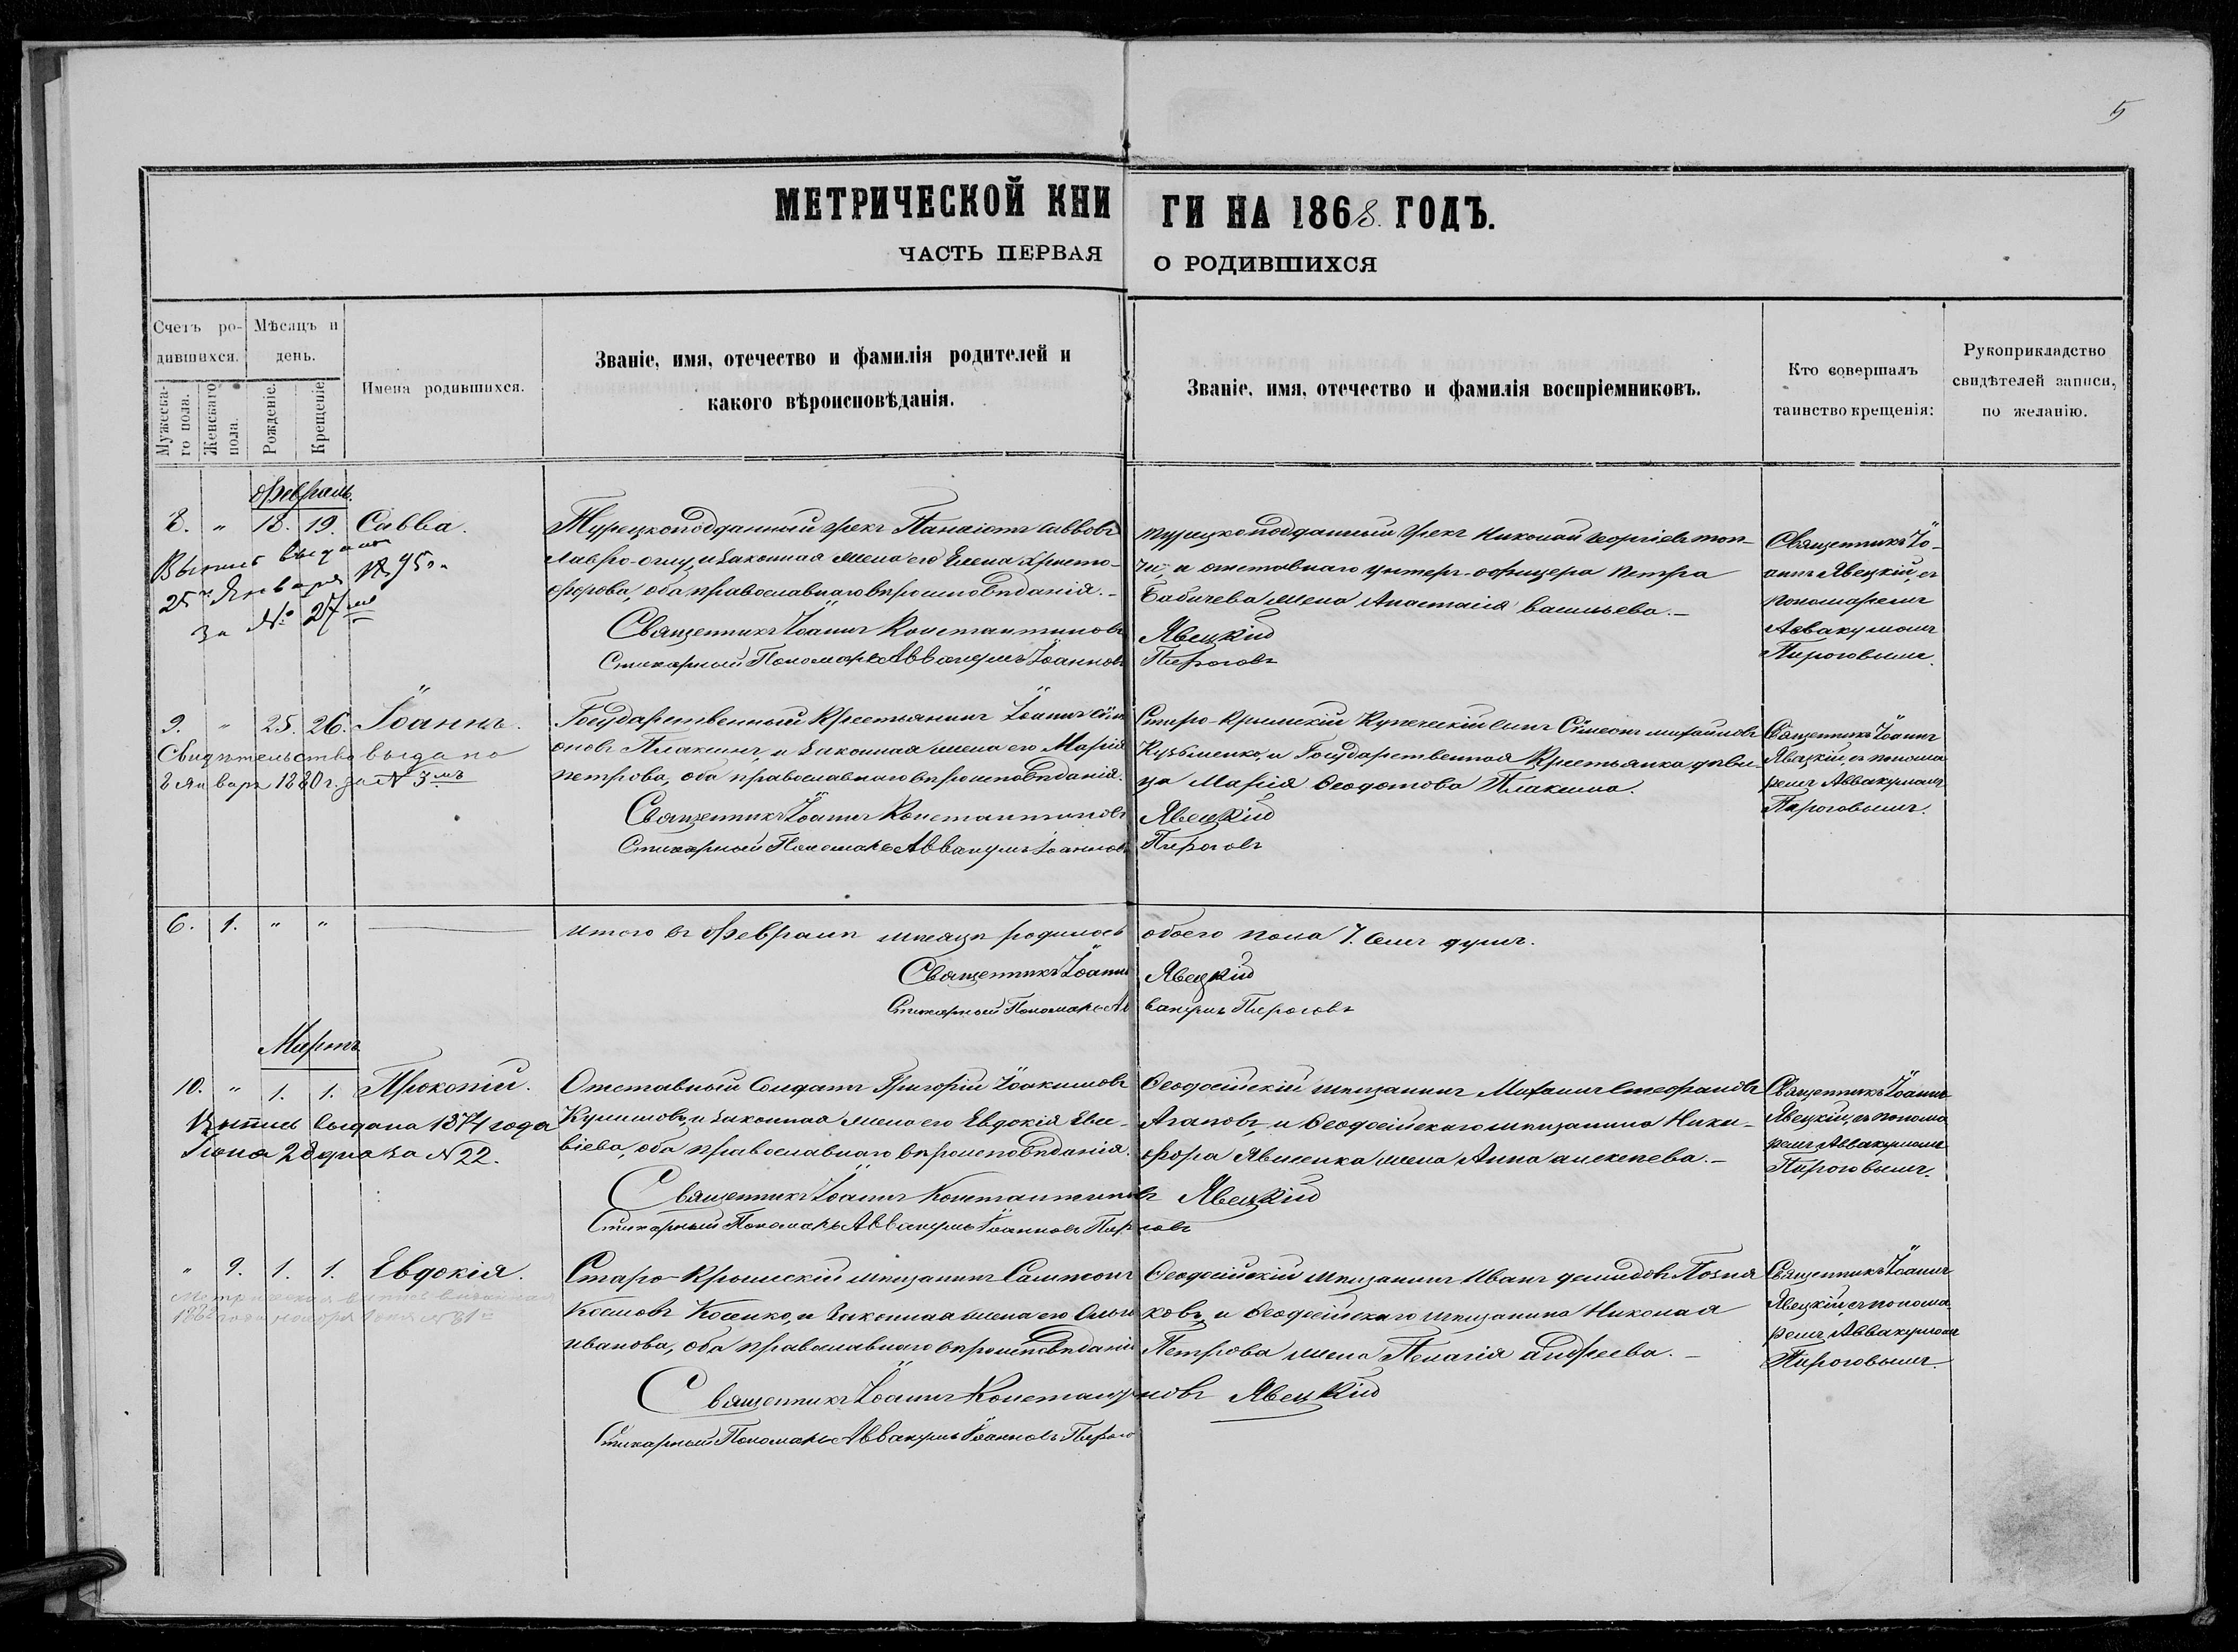 5
МЕТРИЧЕСКОЙ КНИГИ НА 1868. ГОДЪ.
ЧАСТЬ ПЕРВАЯ О РОДИВШИХСЯ
Счетъ ро-
дившихся.
Мѣсяцъ и
день.
Мужеска-
го пола.
Женскаго
пола.
Рожденіе.
Крещеніе
Имена родившихся.
Званіе, имя, отечество и фамилія родителей и
какого вѣроисповѣданія.
Званіе, имя, отечество и фамилія воспріемниковъ.
Кто совершалъ
таинство крещенія:
Рукоприкладство
свидѣтелей записи,
по желанію.
Февраль.
8. " 18. 19. Савва.
Выпись выдана
25 Января 95 г.
За № 27
Турецкоподданный Грекъ Панаіотъ Саввовъ
Лавро-оглу, и законная жена его Елена Христо-
форова, оба православнаго вѣроисповѣданія.-
Священникъ Іоаннъ Константиновъ Явецкій
Стихарный Пономарь Аввакумъ Іоанновъ Пироговъ
турецкоподданный Грекъ Николай Георгіевъ топ-
чи, и отставнаго унтеръ-офицера Петра
Бабичева жена Анастасія Васильева.-
Священникъ Іо-
аннъ Явецкій, съ
пономаремъ
Аввакумомъ
Пироговымъ.
9. " 25. 26. Іоаннъ.
Свидѣтельство выдано
8 январ 1880 г. за № 3
Государственный Крестьянинъ Іоаннъ Сим
оновъ Плаксинъ, и законная жена его Марія
Петрова, оба православнаго вѣроисповѣданія.
Священникъ Іоаннъ Константиновъ Явецкій
Стихарный Пономарь Аввакумъ Іоанновъ Пироговъ
Старо-Крымскій Купеческій сынъ Симеонъ Михайловъ
Кузьменко, и Государственная Крестьянка дѣви-
ца Марія Феодотова Плаксина.
Священникъ Іоаннъ
Явецкій, съ понома
ремъ Аввакумомъ
Пироговымъ.
6. 1. " "
Итого въ Февралѣ мѣсяцѣ родилось обоего пола 7. семь душъ.
Священникъ Іоаннъ Явецкій
Стихарный Пономарь Аввакумъ Пироговъ
Мартъ
10. " 1. 1. Прокопій.
Выпись выдана 1874 года
Іюня 28 дня за № 22.
Отставный Солдатъ Григорій Іоакимовъ
Куришовъ, и законная жена его Евдокія Евсе-
віева, оба православнаго вѣроисповѣданія.
Священникъ Іоаннъ Константиновъ Явецкій
Стихарный Пономарь Аввакумъ Іоанновъ Пироговъ
Феодосійскій мѣщанинъ Михаилъ Стефановъ
Агаповъ, и Феодосійскаго мѣщанина Ники-
фора Явленка жена Анна Алексѣева.-
Священникъ Іоаннъ
Явецкій, съ понома
ремъ Аввакумомъ
Пироговымъ.
" 2. 1. 1. Евдокія.
Метрическая выпись
Старо-Крымскій мѣщанинъ Сампсонъ
Космовъ Косенко, и законная жена его Ольга
Иванова, оба православнаго вѣроисповѣданія
Священникъ Іоаннъ Константиновъ Явецкій
Стихарный Пономарь Аввакумъ Іоанновъ Пирого
Феодосійскій мѣщанинъ Иванъ Демидовъ Позня
ковъ, и Феодосійскаго мѣщанина Николая
Петрова жена Пелагія Андреева.-
Священникъ Іоаннъ
Явецкій, съ понома-
ремъ Аввакумомъ
Пироговымъ.